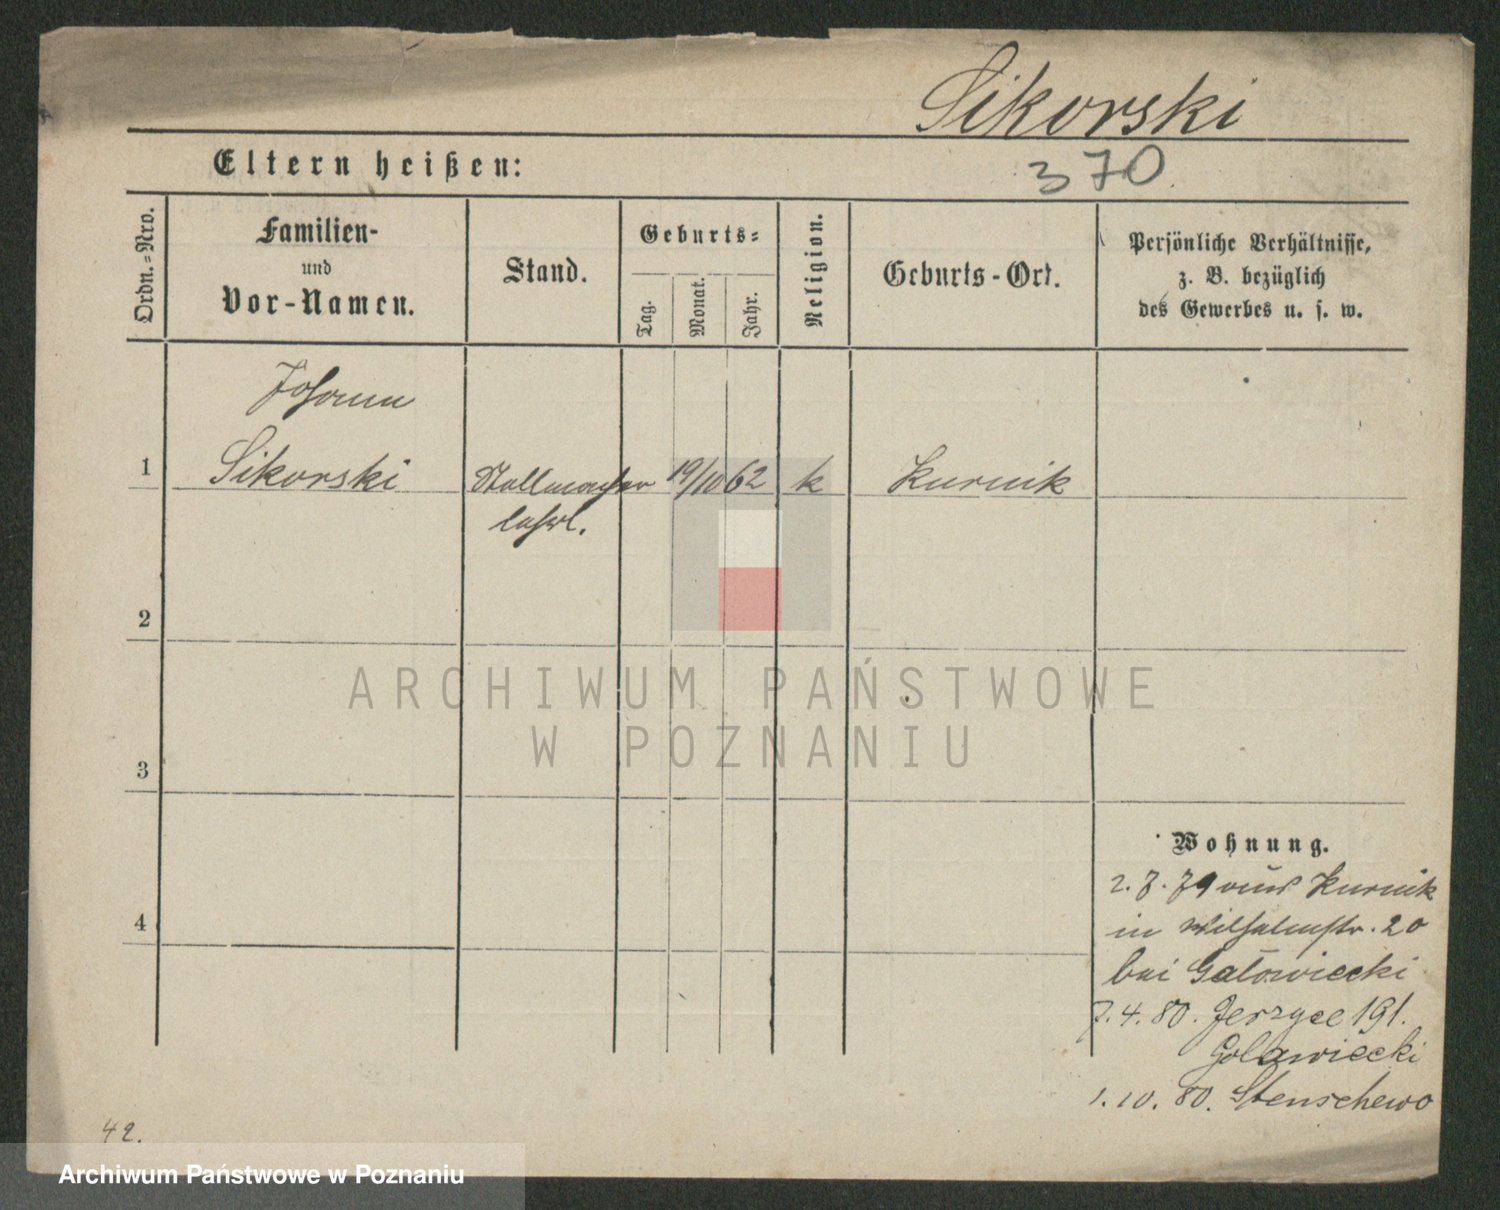 Sikorski
Eltern heißen:
370
Ordn.-Nro.
Familien-
und
Vor-Namen.
Stand.
Geburts-
Tag.
Monat.
Jahr.
Religion.
Geburts-Ort.
Persönliche Verhältnisse,
z. B. bezüglich
des Gewerbes u. s. w.
Johann
1 Sikorski Stellmacher 19/10 62 k Kurnik
lehrl.
2
ARCHIWUM PAŃSTWOWE
W POZNANIU
3
Wohnung.
2. 7. 79 aus Kurnik
4
in Wilhelmstr. 20
bei Gatowiecki
7. 4. 80. Jerzyce 191.
Golawiecki
1. 10. 80. Stenschewo
42.
Archiwum Państwowe w Poznaniu